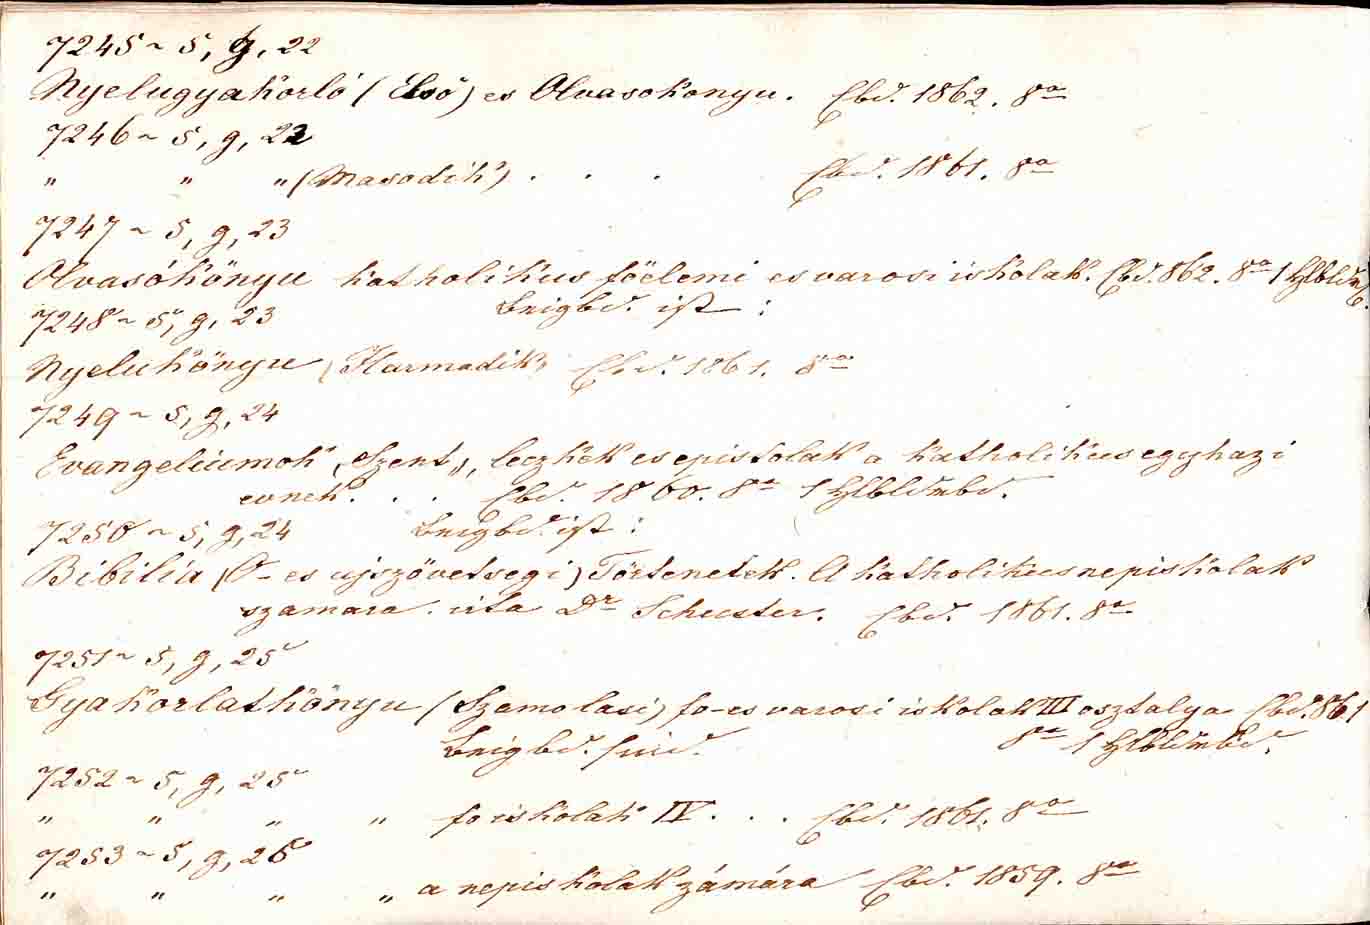 7245 ~ 5, g, 22
Nyelvgyakorló (Első) es Olvasokonyv. Ebd. 1862. 8º
7246 ~ 5, g, 22
" " " (Masodik) . . . Ebd. 1861. 8º
7247 ~ 5, g, 23
Olvasókönyv katholikus föelemi es varosi iskolak. Ebd. 862. 8º 1 Hlbldrbd.
7248 ~ 5, g, 23 Beigbd. ist :
Nyelvkönyv (Harmadik) Ebd. 1861. 8º
7249 ~ 5, g, 24
Evangeliumok (Szent), leczkek es epistolak a katholikus egyhazi
evnek. . . Ebd. 1860. 8º 1 Hlbldrbd.
7250 ~ 5, g, 24 Beigbd. ist :
Bibilia (O- es ujszövetsegi) Törtenetek. A katholikus nepiskolak
szamara. irta Dr Schuster. Ebd. 1861. 8º
7251 ~ 5, g, 25
Gyakorlatkönyv (Szamolasi) fo- es varosi iskolak III osztalya Ebd. 861
Beigbd. sind. 8º 1 Hlbldrbd.
7252 ~ 5, g, 25
" " " " fo iskolak IV. . . Ebd. 1861. 8º
7253 ~ 5, g, 25
" " " " a nepiskolak zámára Ebd. 1859. 8º